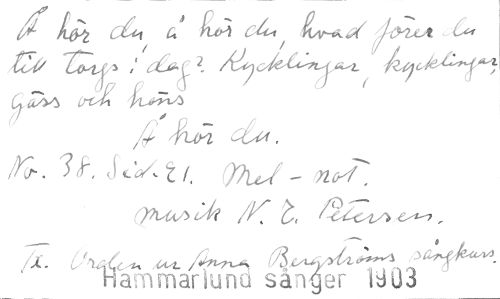 Å hör du, å hör du, hvad förer du
till torgs i dag? Kycklingar, kycklingar,
gäss och höns
Å hör du.
No. 38. Sid. 21. Mel-not.
musik N. E. Petersen.
Tx. Orden ur Anna Bergströms sångkurs.
Hammarlund sånger 1903